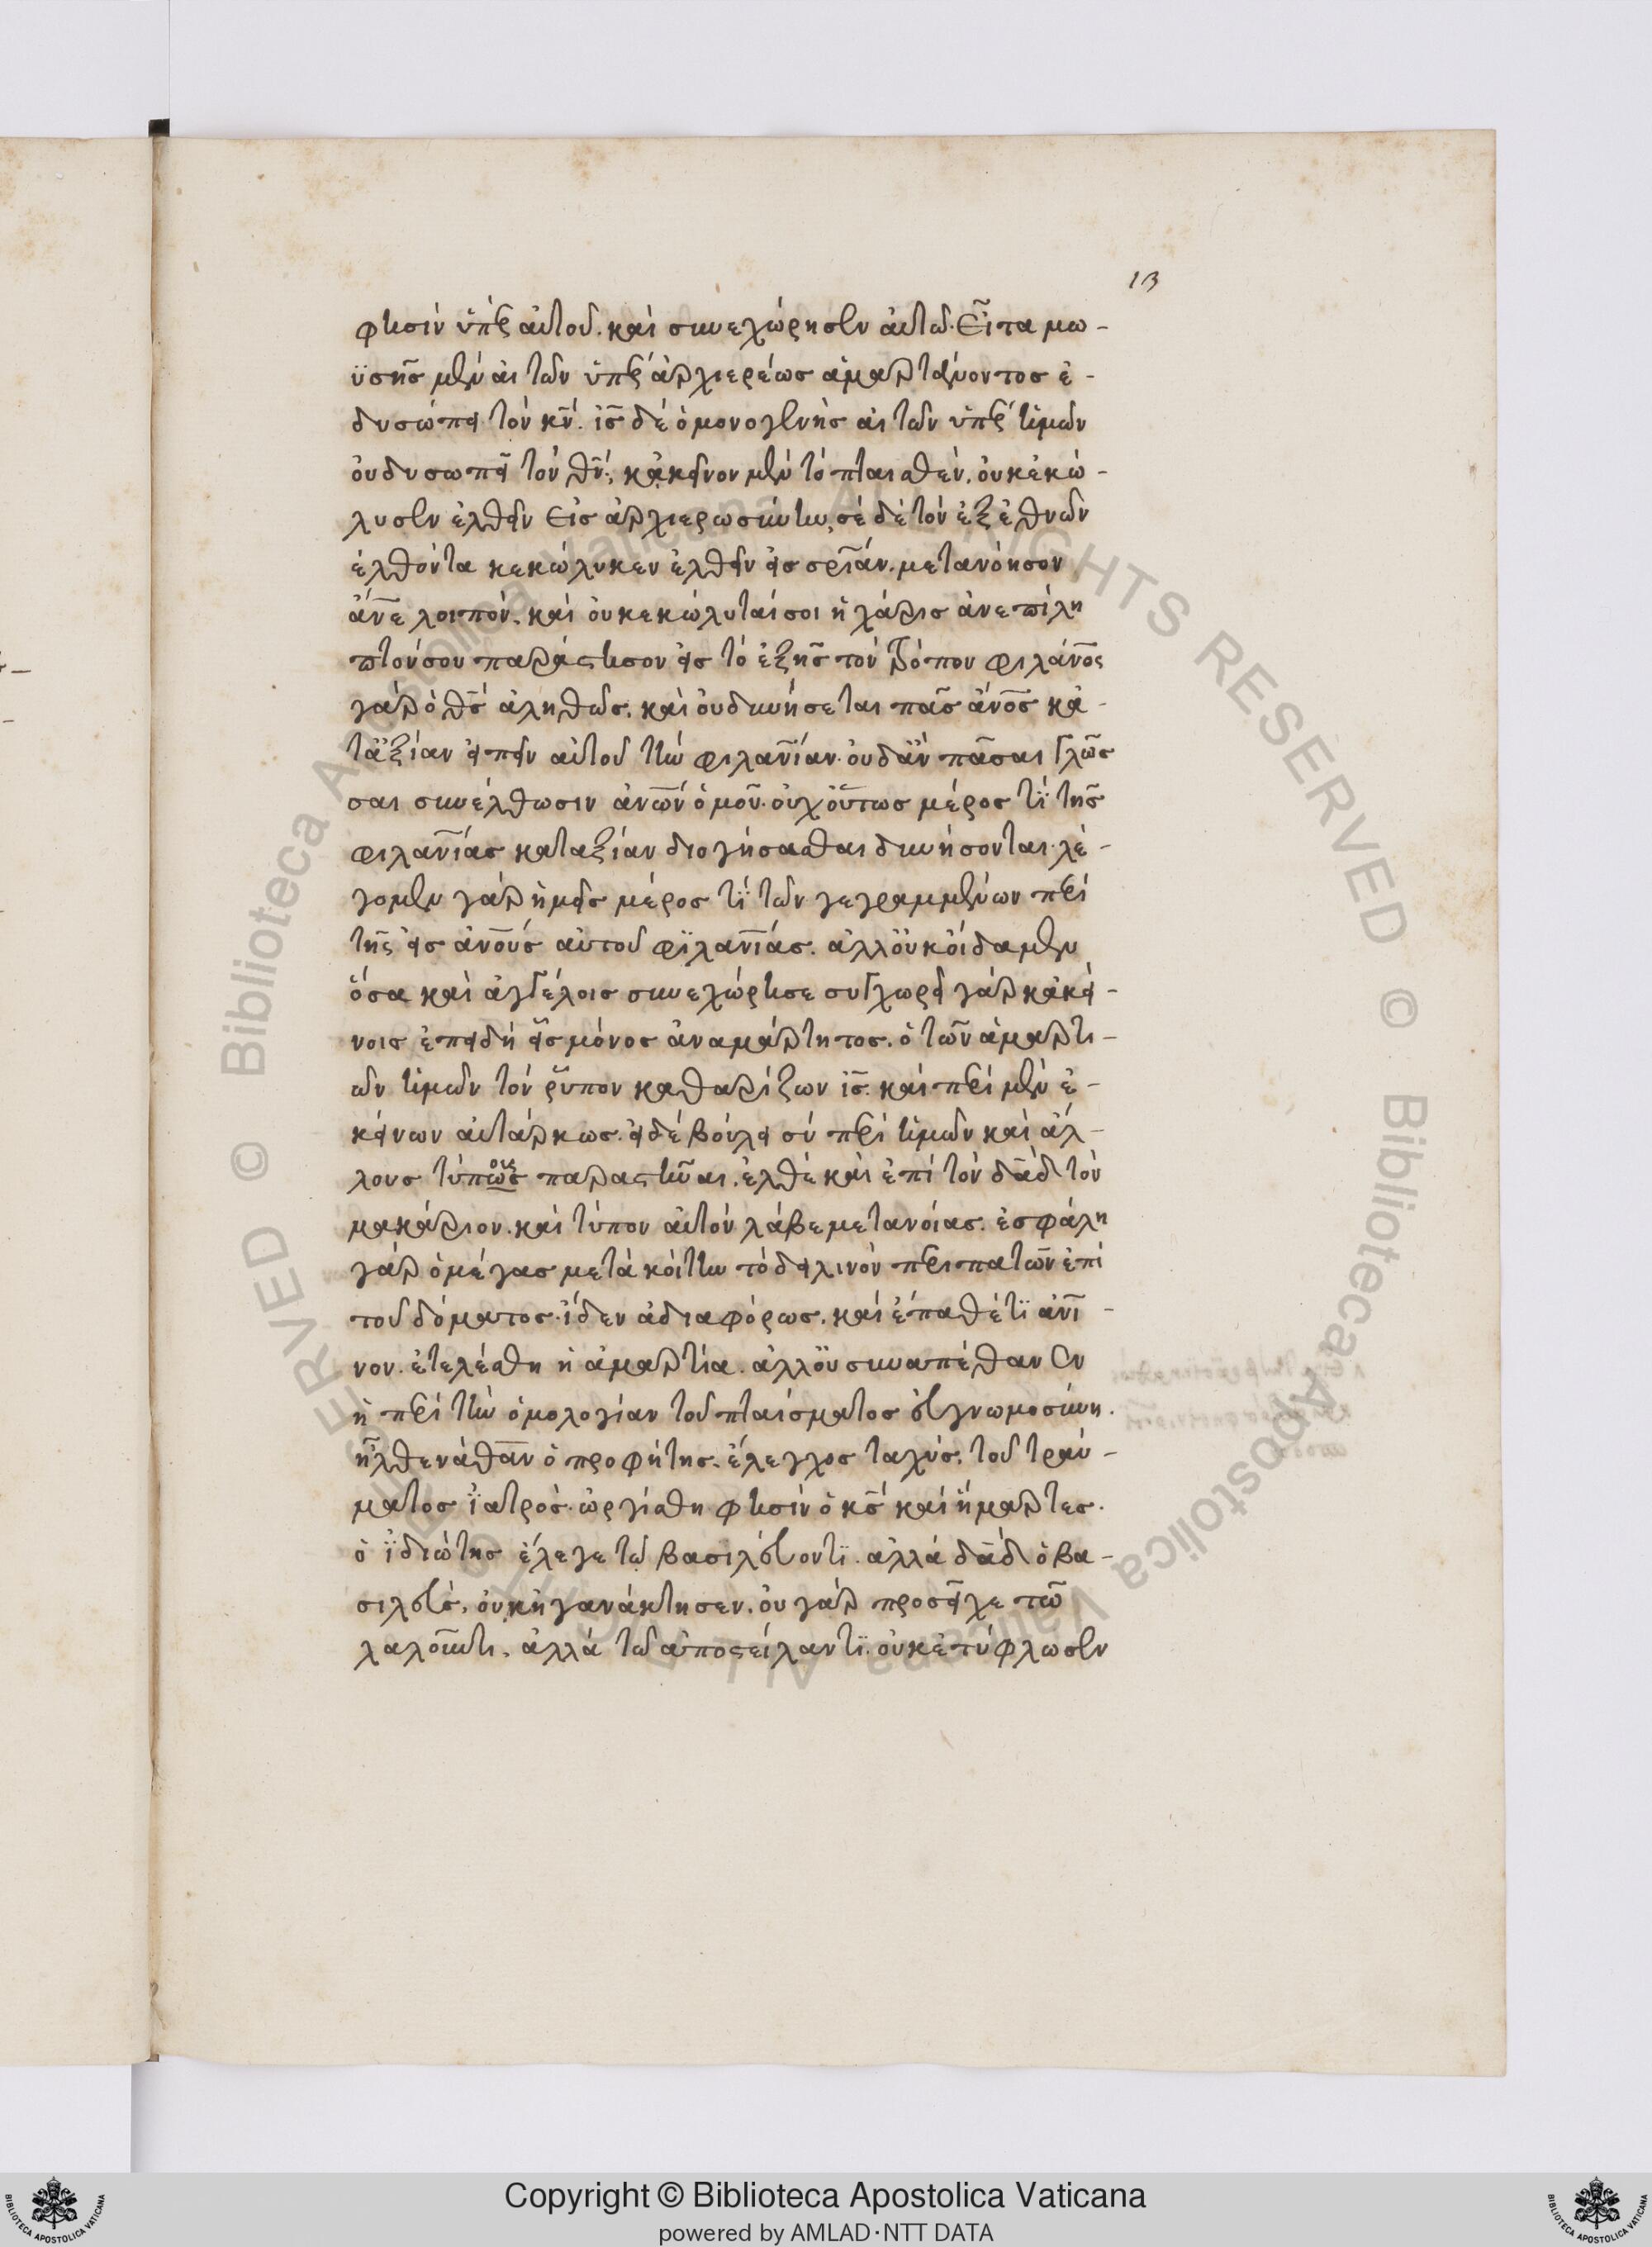 13
φησὶν ὑπὲρ αὐτοῦ. καὶ συνεχώρησεν αὐτῶ. Εἶτα μω-
ϋσῆς μὲν αἰτῶν ὑπὲρ ἀρχιερέως ἁμαρτάνοντος ἐ-
δυσώπει τὸν κ̅ν̅. ι̅ς̅ δὲ ὁ μονογενὴς αἰτῶν ὑπὲρ ἡμῶν
οὐ δυσωπεῖ τὸν θ̅ν̅; κἀκεῖνον μὲν τὸ πταισθὲν, οὐκ ἐκώ-
λυσεν ἐλθεῖν εἰς ἀρχιερωσύνην, σὲ δὲ τὸν ἐξ ἐθνῶν
ἐλθόντα κεκώλυκεν ἐλθεῖν εἰς σ̅ρ̅ιαν. μετανόησον
ἄν̅ε λοιπὸν, καὶ οὐ κεκώλυταί σοι ἡ χάρις ἀνεπίλη
πτον σου παράστησον εἰς τὸ ἑξῆς τὸν τρόπον φιλάν̅ο̅ς
γὰρ ὁ θ̅ς̅ ἀληθῶς. καὶ οὐ δυνήσεται πᾶς ἄν̅ο̅ς κα-
ταξίαν εἰπεῖν αὐτοῦ τὴν φιλαν̅ί̅αν. οὐδ' ἂν πᾶσαι γλῶσ
σαι συνέλθωσιν ἀν̅ω̅ν ὁμοῦ. οὐχ οὕτως μέρος τϊ τῆς
φιλαν̅ί̅ας καταξίαν διηγήσασθαι δυνήσονται. λέ-
γομεν γὰρ ἡμεῖς μέρος τϊ τῶν γεγραμμένων περὶ
τῆς εἰς ἀν̅ο̅υς αὐτοῦ φϊλαν̅ί̅ας. ἀλλ' οὐκ οἴδαμεν
ὅσα καὶ ἀγγέλοις συνεχώρησε συγχωρεῖ γὰρ κἀκεί-
νοις ἐπειδὴ εἷς μόνος ἀναμάρτητος. ὁ τῶν ἁμαρτι-
ῶν ἡμῶν τὸν ῥύπον καθαρίζων ι̅ς̅. καὶ περὶ μὲν ἐ-
κείνων αὐτάρκως. εἰ δὲ βούλει σὺ περὶ ἡμῶν καὶ ἄλ-
λους τύπωςους παραστῆναι. ἐλθὲ καὶ ἐπὶ τὸν δ̅α̅δ τὸν
μακάριον. καὶ τύπον αὐτὸν λάβε μετανοίας. ἐσφάλη
γὰρ ὁ μέγας μετὰ κοίτην τὸ δειλινὸν περιπατῶν ἐπὶ
τοῦ δόματος. ἴδεν ἀδιαφόρως. καὶ ἔπαθέ τϊ ἀν̅ι̅-
νον. ἐτελέσθη ἡ ἁμαρτία. ἀλλ' οὐ συναπέθανεν
ἡ περὶ τὴν ὁμολογίαν τοῦ πταίσματος εὐγνωμοσύνη.
ἦλθε νάθαν ὁ προφήτης. ἔλεγχος ταχὺς, τοῦ τραύ-
ματος ἰατρός. ὠργίσθη φησὶν ὁ κ̅ς̅ καὶ ἥμαρτες.
ὁ ἰδιώτης ἔλεγε τῶ βασιλεύοντϊ. ἀλλὰ δ̅α̅δ ὁ βα-
σιλεὺς, οὐκ ἠγανάκτησεν, οὐ γὰρ προσεῖχε τῶ
λαλοῦντι, ἀλλὰ τῶ ἀποστείλαντϊ. οὐκ ἐτύφλωσεν
Copyright © Biblioteca Apostolica Vaticana
powered by AMLAD·NTT DATA